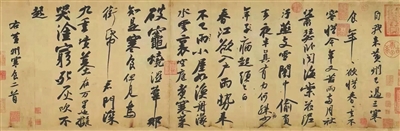 自我來黃州已過三寒
食年〻欲惜春〻去不
容惜今年又苦雨兩月秋
蕭瑟卧聞海棠花泥
汙燕支雪闇中偷負
去夜半真有力何殊病
少年病起頭已白
春江欲入戶雨勢來
不已小屋如漁舟濛〻
水雲裏空庖煮寒菜
破竈燒濕葦那
知是寒食但見烏
銜帋君門深
九重墳墓在万里也擬
哭塗窮死灰吹不
起
右黃州寒食二首